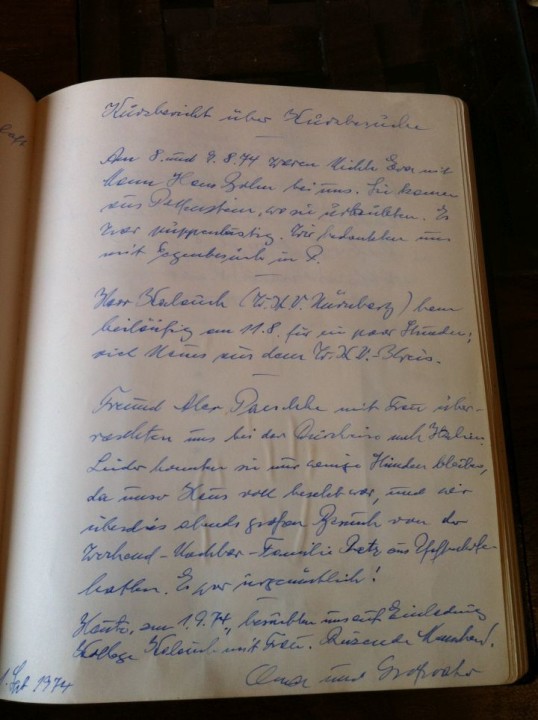 Kurzbericht über Kurzbesuche
Am 8. und 9.8.74 waren Nichte Eva mit
Mann Hans bei uns. Sie kamen
aus Pottenstein, wo sie urlaubten. Es
war puppenlustig. Wir bedankten uns
mit Gegenbesuch in P.
Herr Kaleuch (W.K.V. Nürnberg) kam
beiläufig am 11.8. für ein paar Stunden;
viel Neues aus dem W.K.V.-Kreis.
Freund Alex Paeschke mit Frau über-
raschten uns bei der Durchreise nach Italien.
Leider konnten sie nur wenige Stunden bleiben,
da unser Haus voll besetzt war, und wir
überdies abends großen Besuch von der
Nachbar-Familie aus
hatten. Es war urgemütlich!
Heute, am 1.9.74, besuchten uns auf Einladung
Kollege Kaleuch mit Frau. Reizende Menschen!
Omi und Großvater
1. Sept 1974